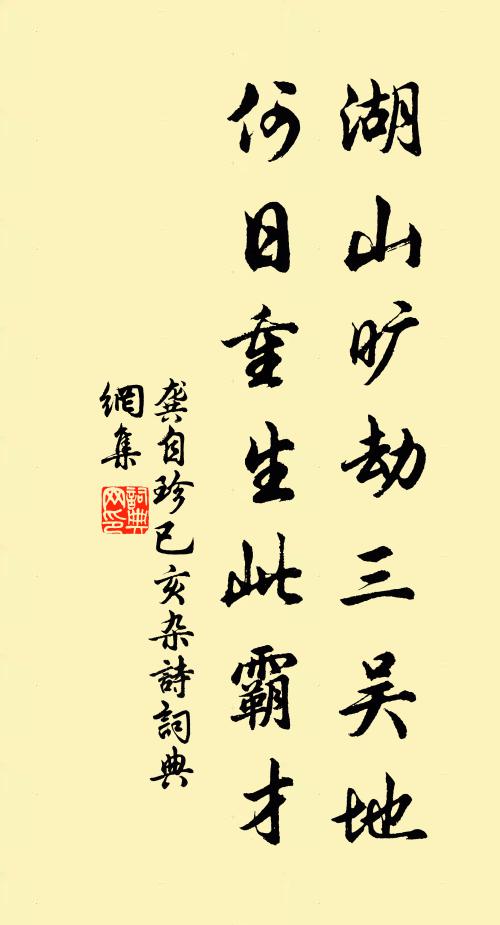 湖山旷劫三吴地
何日重生此霸才
龚自珍已亥杂詩詞典
網集
詞典
网印